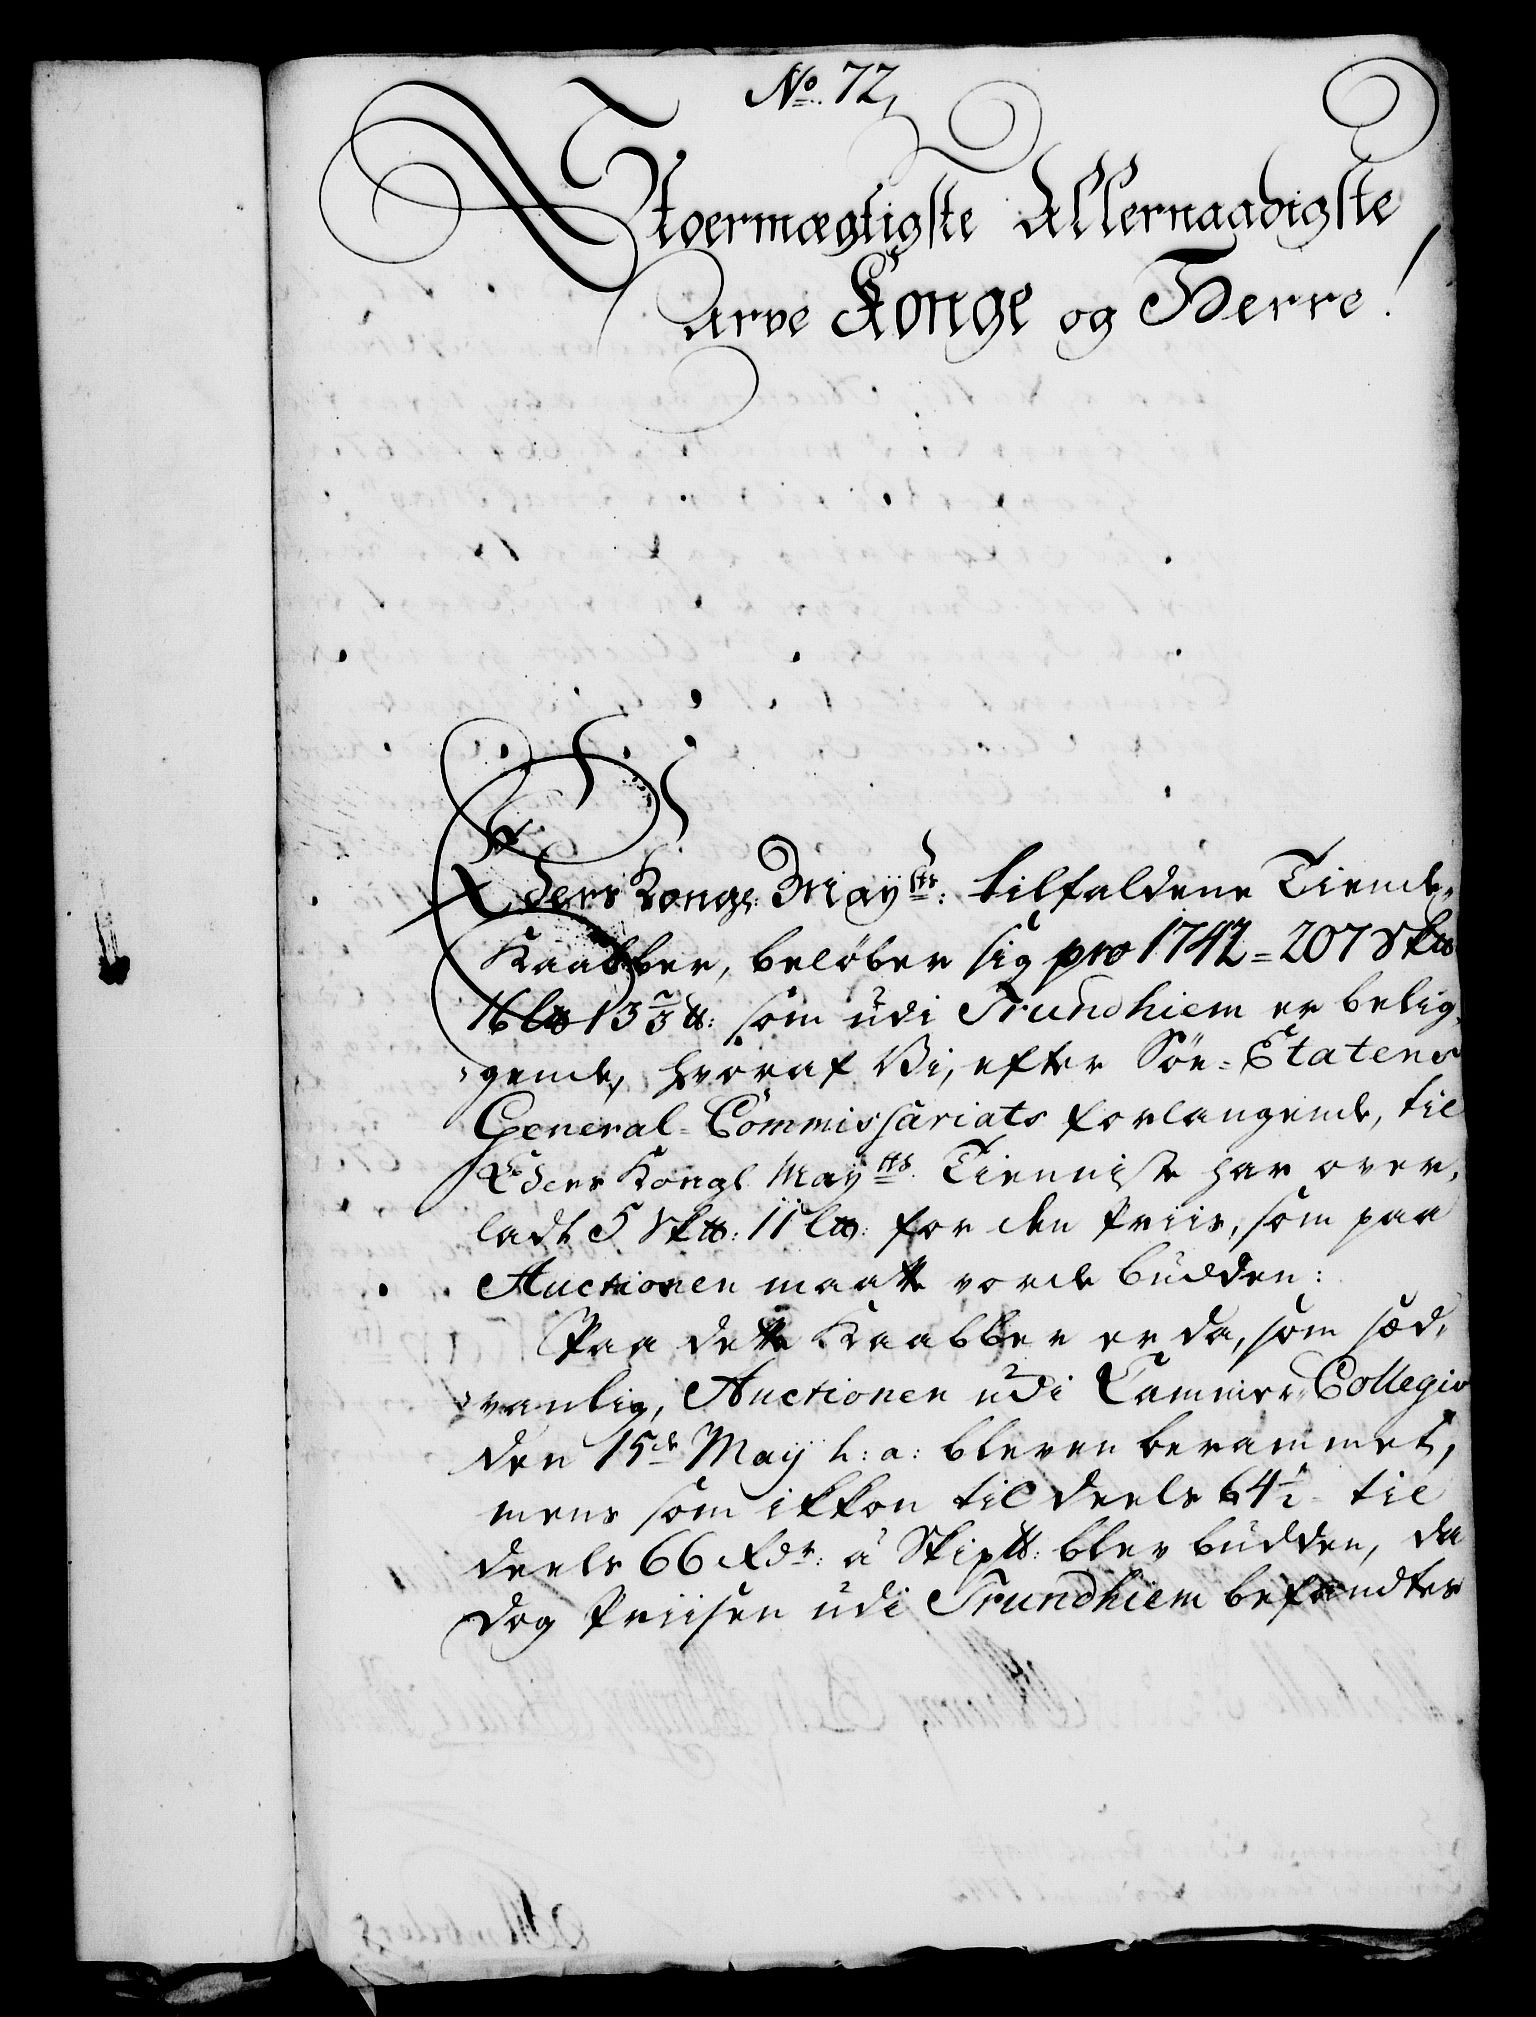 No. 72,
Stoermægtigste Allernaadigste
Arve Konge og Herre!
Eders Kongl: Mayts: tilfaldene Tiende-
Kaabber, beløber sig pro 1742 = 207 Sk℔
16 L℔ 13 2/3 ℔: som udi Trundhiem er belig-
gende, hvoraf Vi, efter Söe-Etatens
General-Commissariats forlangende, til
Eders Kongl Mayts Tienniste har over-
ladt 5 Sk℔: 11 L℔: for den Priis, som paa
Auctionen maatte vorde budden:
Paa dette Kaabber er da, som sæd-
vanlig, Auctionen udi Cammer-Collegio
den 15de May h: a: bleven berammet,
mens som ikkon til deels 64 1/2 - til
deels 66 Rdr: à Skip℔: blev budden, da
dog Priisen udi Trundhiem befandtes